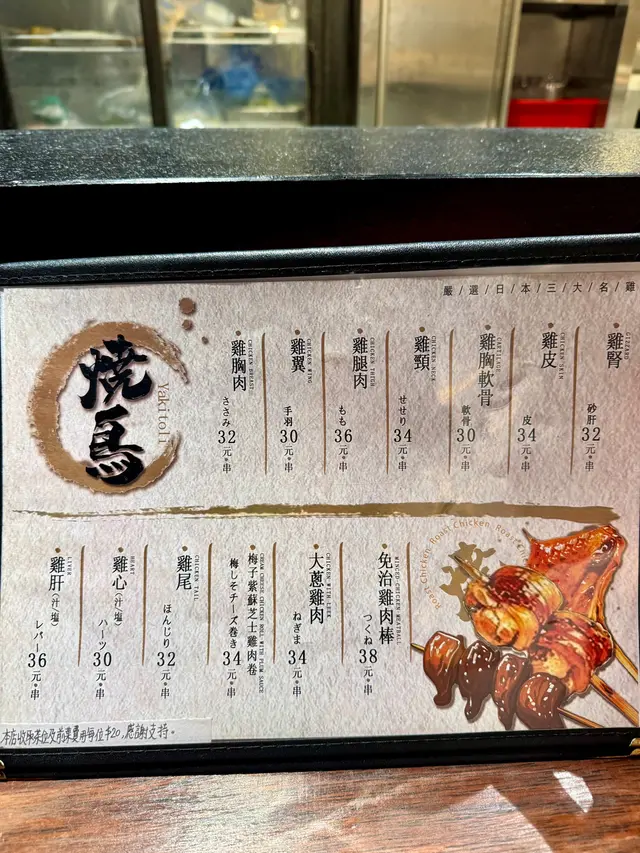 嚴/選/日/本/三/大/名/雞
焼鳥
Yakitori
雞腎
GIZZARD
砂肝
32元•串
雞皮
CHICKEN SKIN
皮
34元•串
雞胸軟骨
CARTILAGE
軟骨
30元•串
雞頸
CHICKEN NECK
せせり
34元•串
雞腿肉
CHICKEN THIGH
もも
36元•串
雞翼
CHICKEN WING
手羽
30元•串
雞胸肉
CHICKEN BREAST
ささみ
32元•串
Roast Chicken Roast Chicken Roast
免治雞肉棒
MINCED-CHICKEN MEATBALL
つくね
38元•串
大蔥雞肉
CHICKEN WITH LEEK
ねぎま
34元•串
梅子紫蘇芝士雞肉卷
CREAM CHEESE CHICKEN ROLL WITH PLUM SAUCE
梅しそチーズ巻き
34元•串
雞尾
CHICKEN TAIL
ほんじり
32元•串
雞心(汁/塩)
HEART
ハーツ
30元•串
雞肝(汁/塩)
LIVER
レバー
36元•串
本店收取茶位及前準費用每位$20,感謝支持。